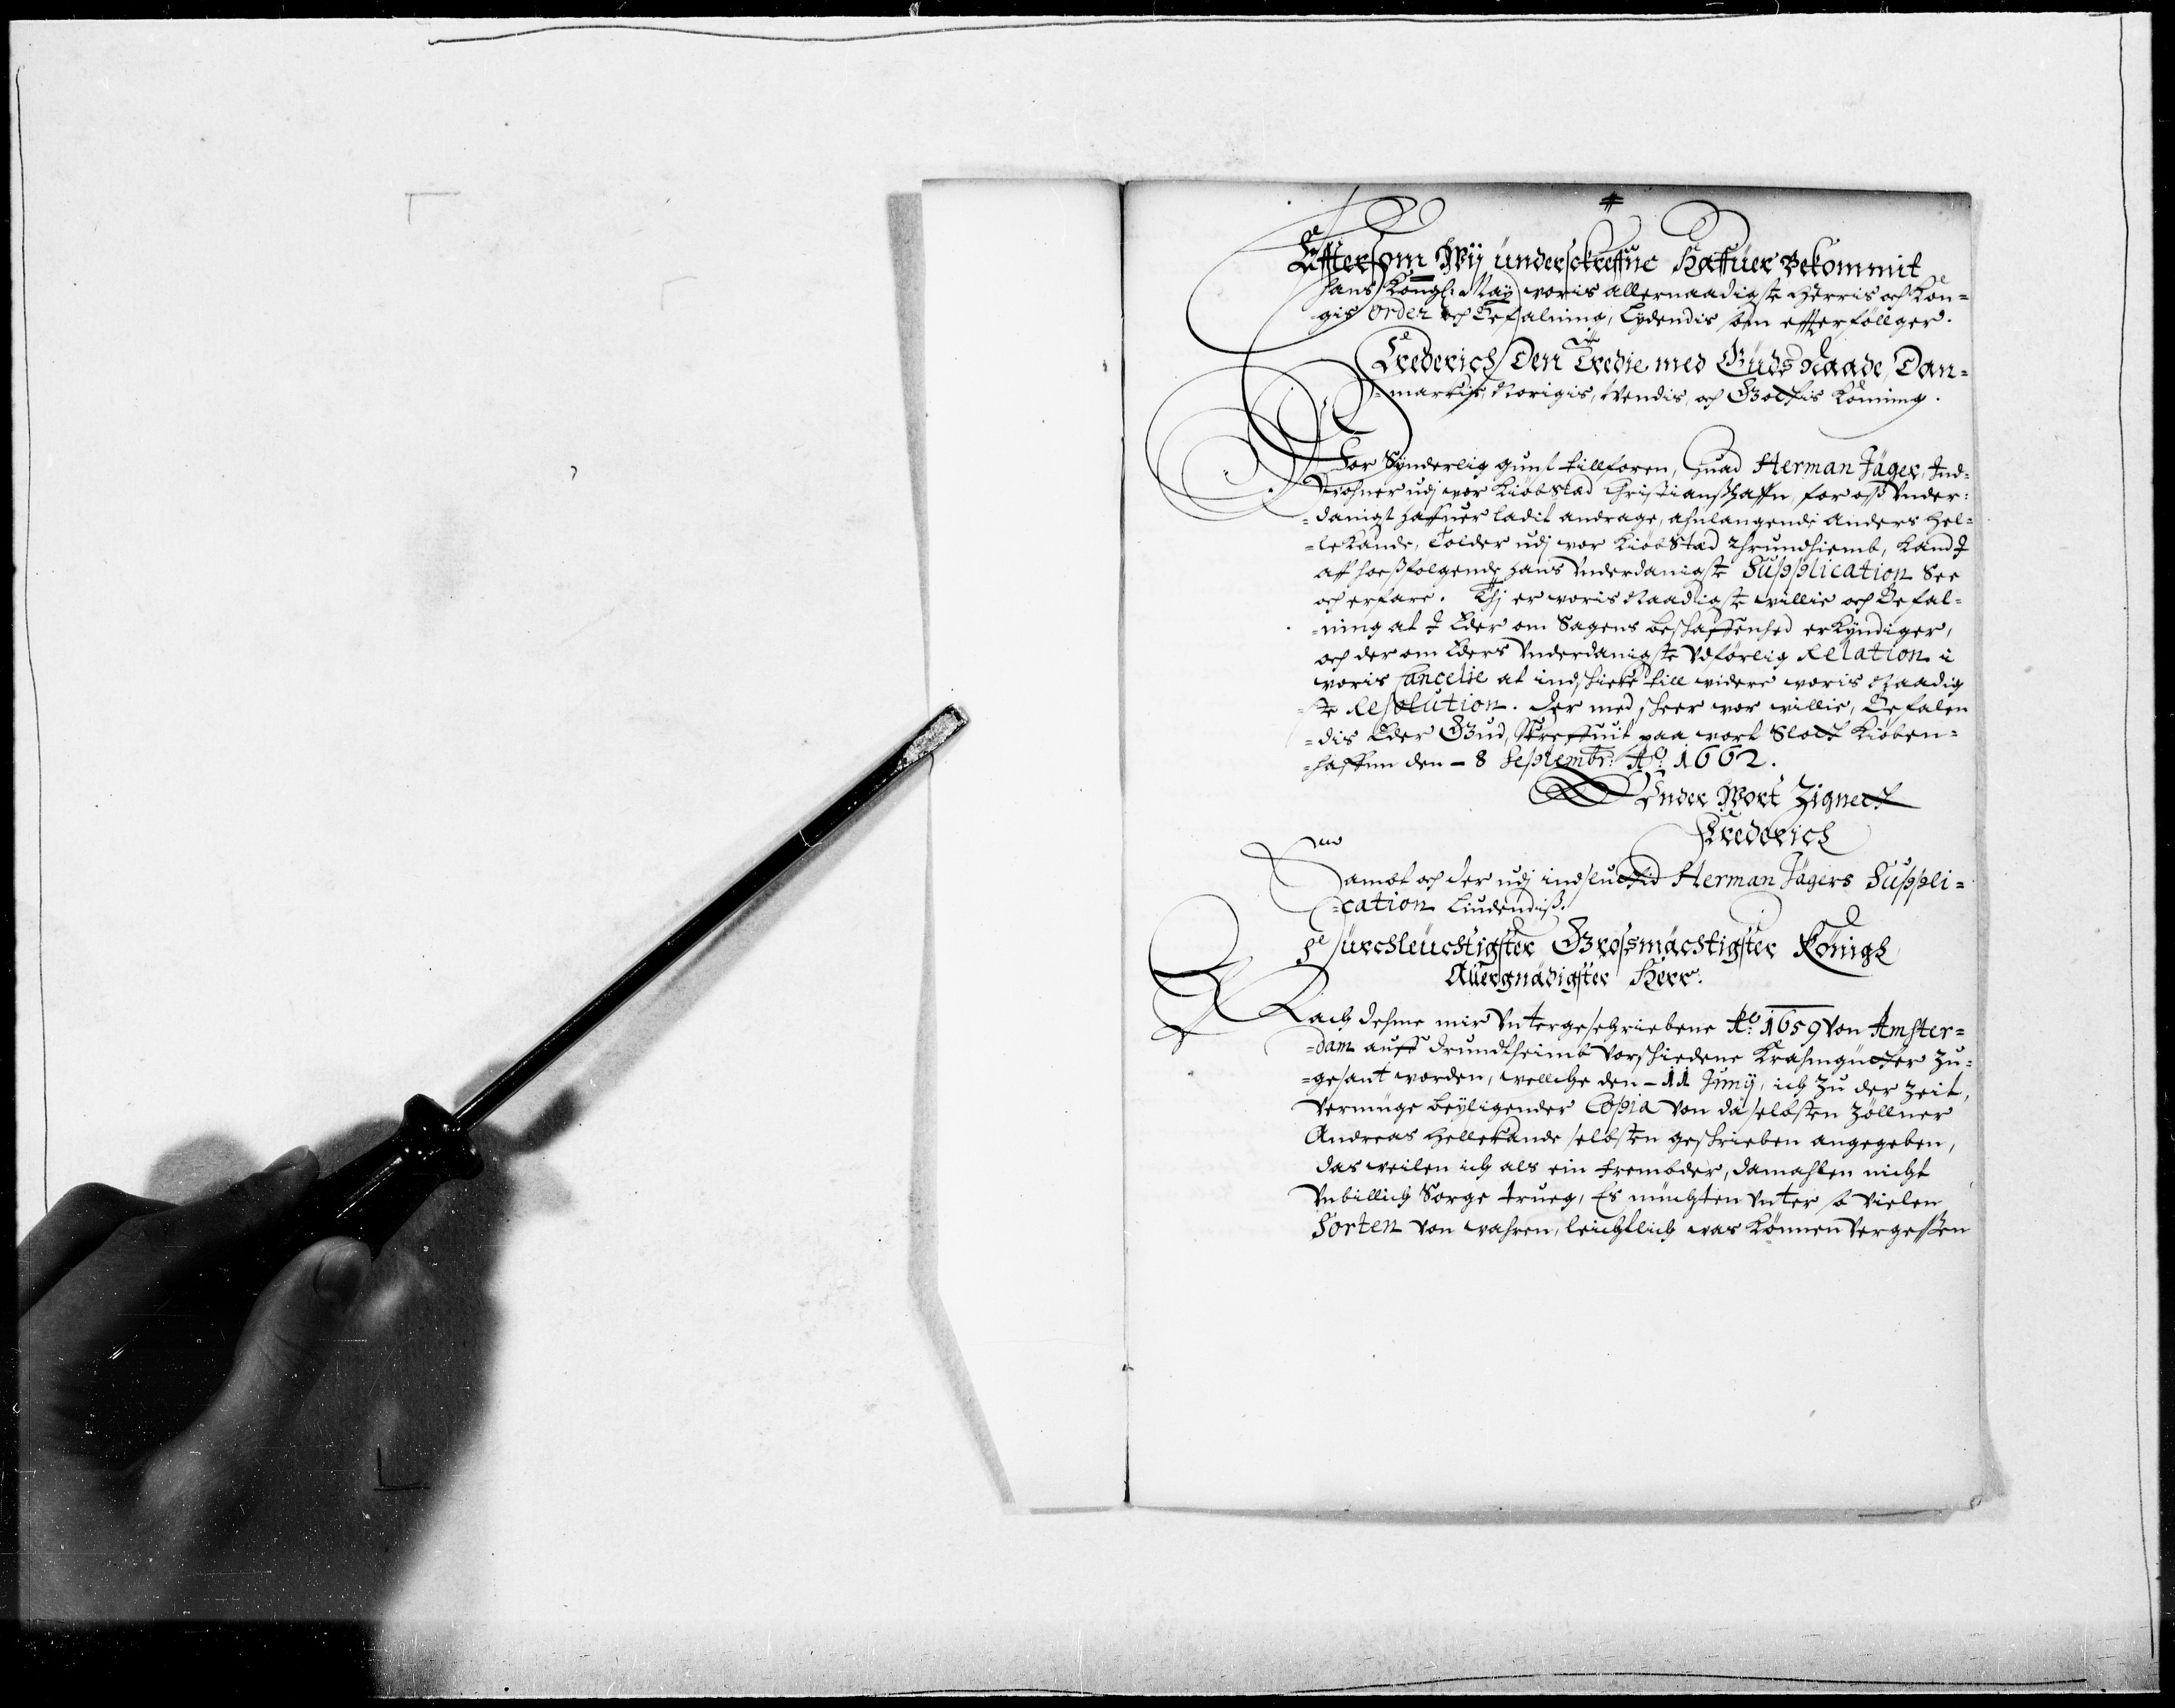 Efftersom Wij underskreffne Haffuer Bekommit
Hans Kongl: May: woris allernaadigste Herris och Kon=
gis Order och Befalning, Lydendis som effterföllger.
Frederich Den Tredie med Guds Naade, Dan=
=markis, Norigis, Wendis, och Gottis Konning.
Wor Synderlig gunst tillforen, Huad Herman Jäger, Ind=
wohner udj wor Kiöbstad Christianshaffn, for oss Vnder=
=danigst haffuer ladit andrage, ahnlangende Anders Hel=
=lekande, Tolder udj wor KiöbStad Thrundhiemb, Kand I
aff hosfolgende hans Vnderdanigste Supplication See
och erfare. Thj er woris Naadigste willie och Befal=
=ning at I Eder om Sagens beskaffenhed erkyndiger,
och der om Eders Vnderdanigste Vdförlig Relation i
woris Cancelie at indskicke till widere woris Naadig
=ste Resolution. Der med skeer wor willie, Befalen
=dis Eder Gud, Skreffuit paa wort Slott Kiöben=
=haffnn den - 8 Septembr: Ao: 1662.
Under Wort Zignett
Frederich
Samot och der udj indsluttid Herman Jägers Suppli=
=cation Liudendiss.
Dürchleüchtigster Grossmächtigster Königh
Allergnädigster Herr.
Nach dehme mir Vntergeschriebene Ao: 1659 Von Amster=
=dam auff Drundtheimb Vorschiedene Krahmgütter Zu=
=gesant worden, wellche den - 11 Junij, ich Zu der Zeit,
Vermüge beyligender Copia Von daselbsten Zöllner
Andreas Hellekande selbsten geschrieben angegeben,
das weilen ich als ein frembder, damahlen nicht
Vnbillich Sorge trueg, Es müchten Vnter so Vielen
Sorten Von wahren, leichtlich was können Vergessen